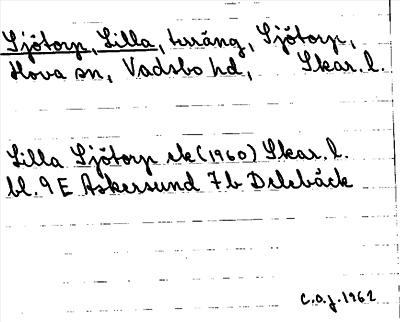 Sjötorp, Lilla, terräng, Sjötorp,
Hova sn, Vadsbo hd, Skar. l.
Lilla Sjötorp ek (1960) Skar. l.
bl. 9 E Askersund 7b Delebäck
C.a.j. 1962